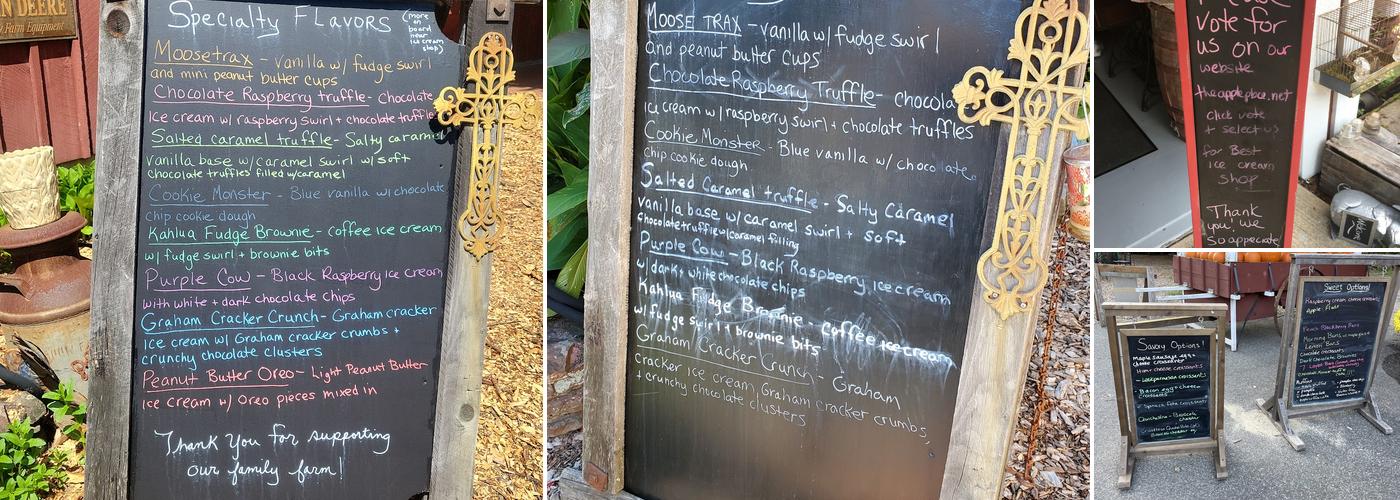 N DEERE
Farm Equipment
Specialty Flavors
(more
on
board
near
ice cream
shop)
Moosetrax - vanilla w/ fudge swirl
and mini peanut butter cups
Chocolate Raspberry truffle - chocolate
ice cream w/ raspberry swirl + chocolate truffles
Salted caramel truffle - Salty caramel
vanilla base w/ caramel swirl w/ soft
chocolate truffles filled w/caramel
Cookie Monster - Blue vanilla w/ chocolate
chip cookie dough
Kahlua Fudge Brownie - coffee ice cream
w/ fudge swirl + brownie bits
Purple Cow - Black Raspberry ice cream
with white + dark chocolate chips
Graham Cracker Crunch - Graham cracker
ice cream w/ Graham cracker crumbs +
crunchy chocolate clusters
Peanut Butter Oreo - Light Peanut Butter
ice cream w/ Oreo pieces mixed in
Thank you for supporting
our family farm!
MOOSE TRAX - vanilla w/ fudge swirl
and peanut butter cups
Chocolate Raspberry Truffle - chocola
ice cream w/ raspberry swirl + chocolate truffles
Cookie Monster - Blue vanilla w/ chocolate
chip cookie dough
Salted Caramel truffle - Salty Caramel
vanilla base w/ caramel swirl + soft
chocolate truffle w/caramel filling
Purple Cow - Black Raspberry ice cream
w/ dark + white chocolate chips
Kahlua Fudge Brownie - coffee ice cream
w/ fudge swirl + brownie bits
Graham Cracker Crunch - Graham
cracker ice cream, Graham cracker crumbs,
+ crunchy chocolate clusters
vote for
us on our
website
theappleplace.net
click vote
+ select us
for Best
ice cream
shop
Thank
you! we
so appreciate
Savory Options!
Maple Sausage egg +
cheese croissants
- Bacon egg + cheese
croissants
Sweet Options!
Raspberry cream cheese croissants
Lemon Bars
Chocolate croissants